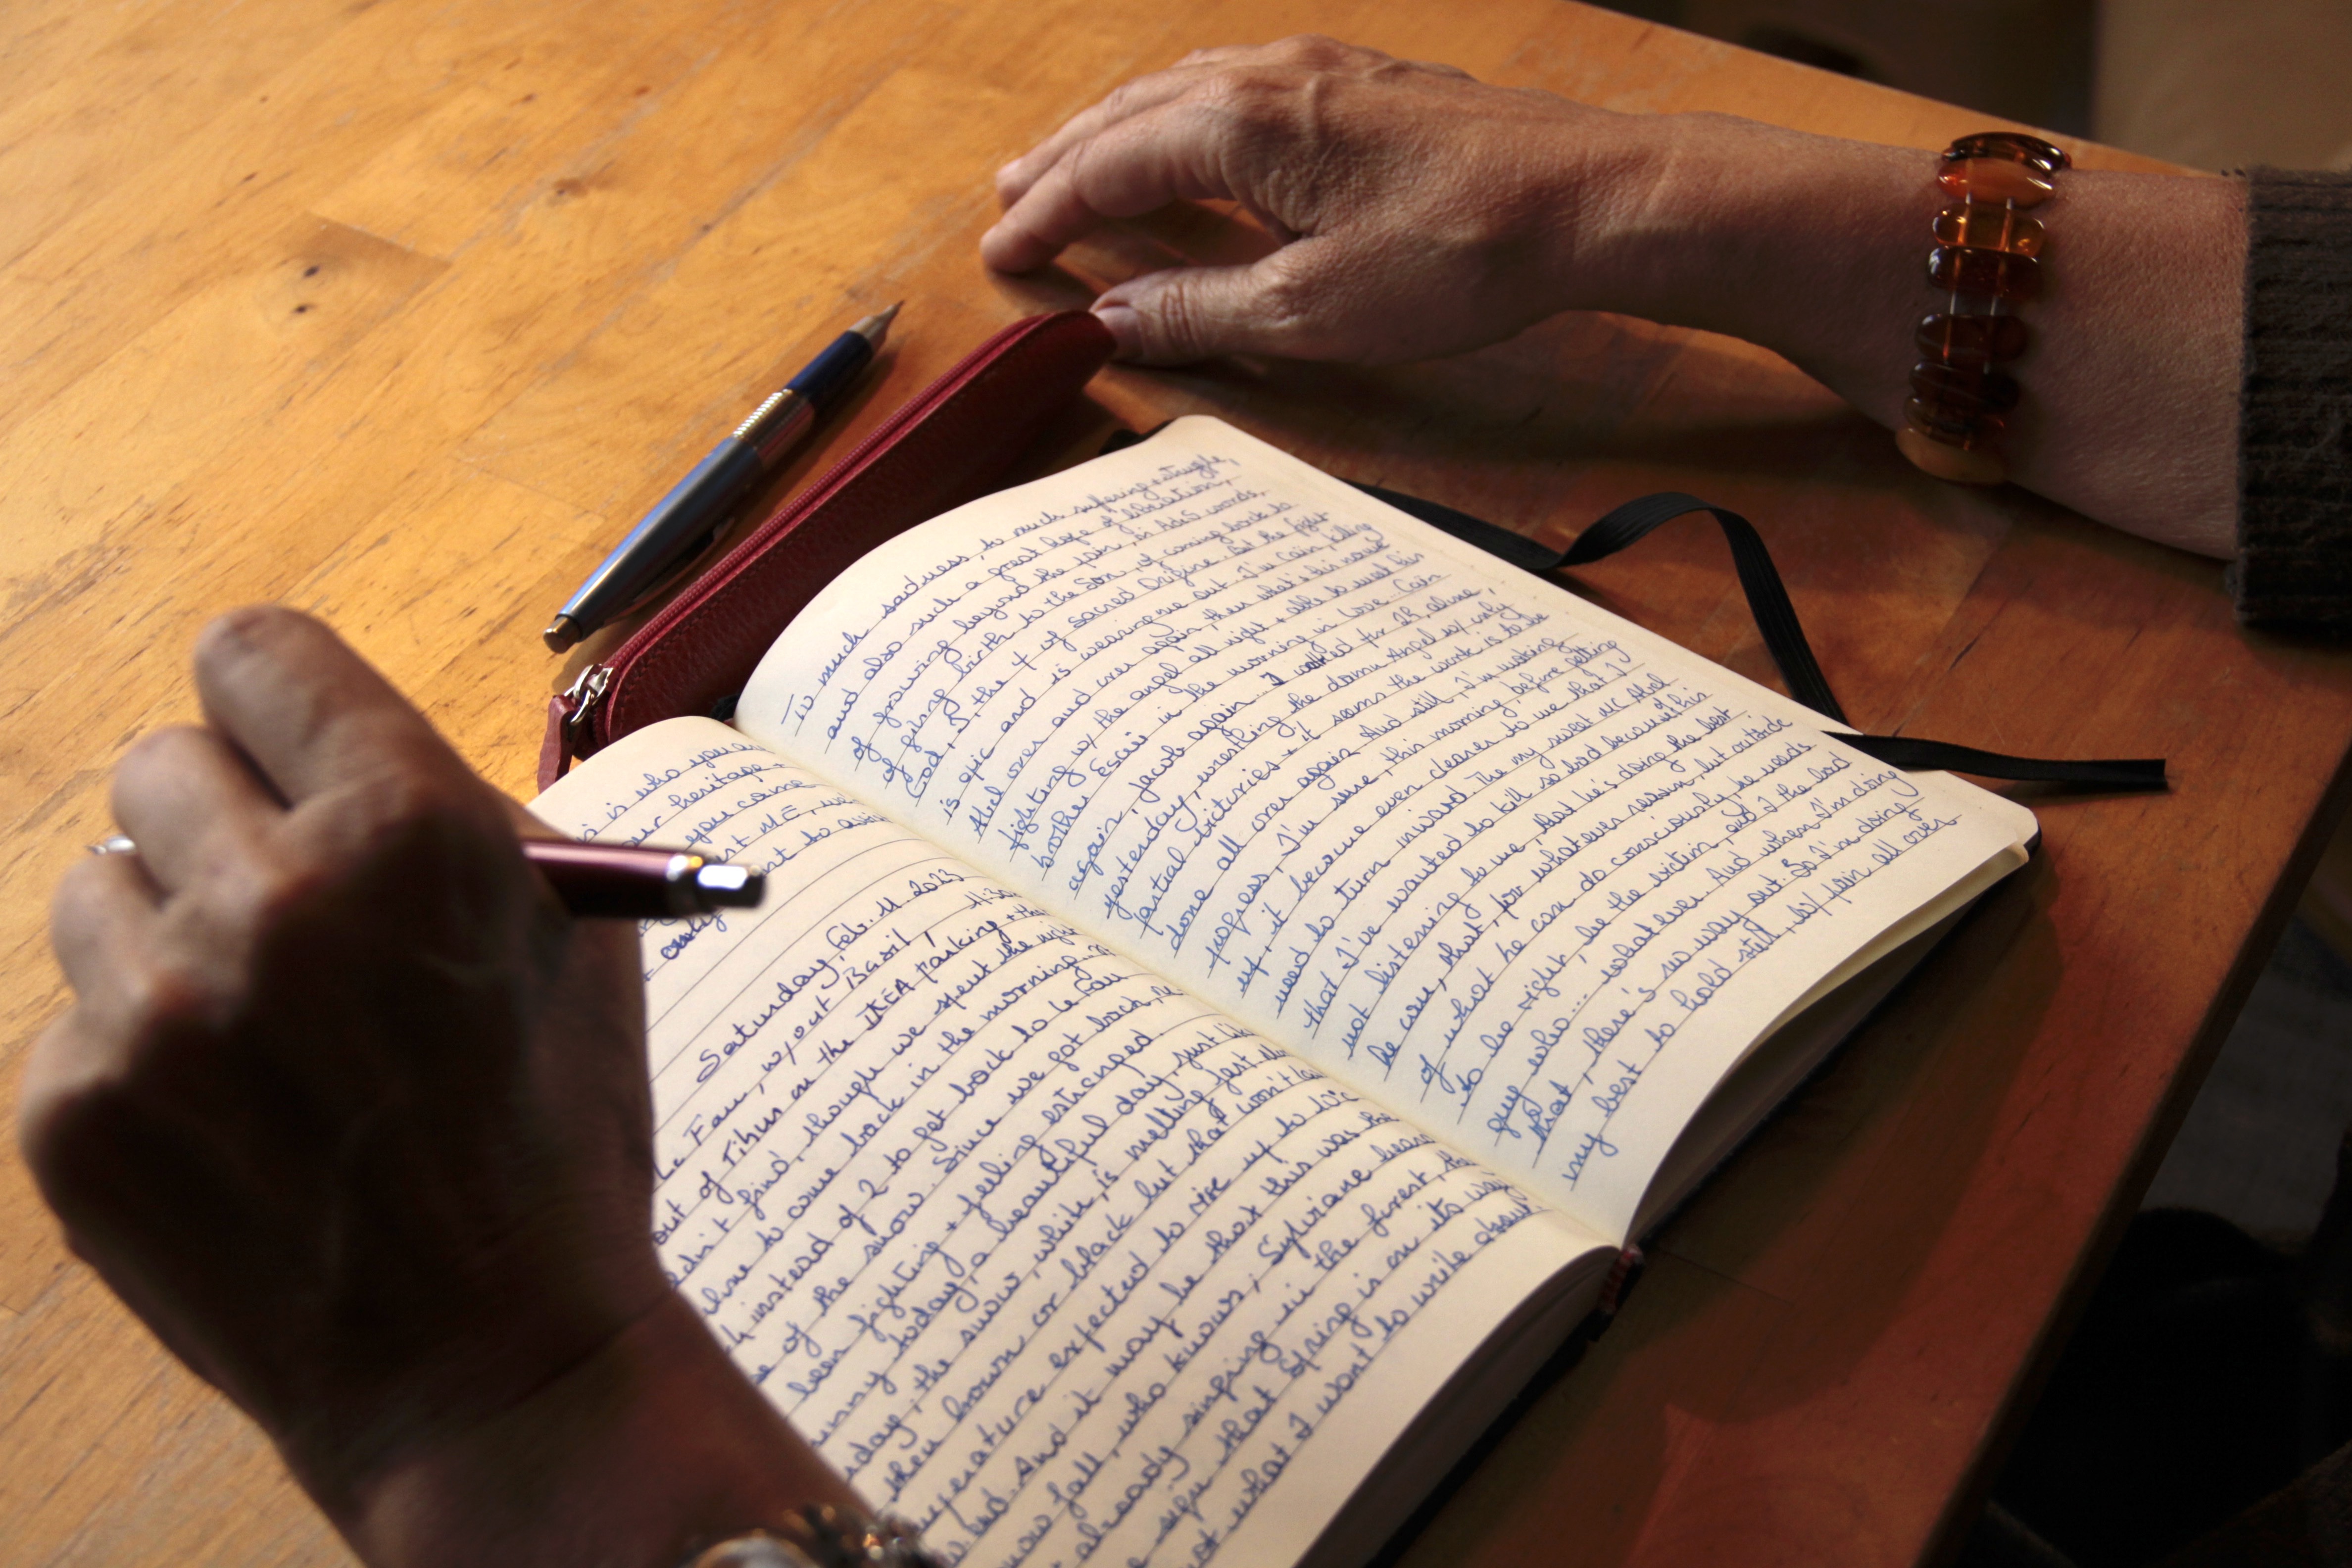 is who you are
our heritage.
you come
st ME, we
Saturday, Feb. 11. 2023
Le Fau, w/out Basil, 11:30
out of Tihun on the IKEA parking + the
didn't find, though we spent the night
to come back in the morning
instead of 2 to get back to Le Fau
of the snow. Since we got back,
been fighting + feeling estranged.
sunny today, a beautiful day, just like
the snow, while, is melting fast
then brown or black but that won't
temperature expected to rise up to
And it may be that this was the
snow fall, who knows, Sylviane hears
already singing in the forest, the
sign that Spring is on its way
not what I want to write about
To much sadness, to much suffering + struggle,
and also such a great hope of liberation,
of growing beyond the pain, in Ada's words,
of giving birth to the Son, of coming back to
God, I, the I of sacred Origine. But the fight
is epic and is wearing me out. I'm Cain, killing
Abel over and over again, then what's his name
fighting w/ the angel all night + able to meet his
brother Esau in the morning in Love. Cain
again, Jacob again. I cried for 2h, alone,
yesterday, wrestling the damn Angel w/ only
partial victories + it seems the work is to be
done all over again. And still, I'm making
progress, I'm sure, this morning, before getting
up, it became even clearer to me that I
need to turn inward the my sweet Abel
that I've wanted to kill so bad because of his
not listening to me, that he's doing the best
he can, that, for whatever reason, but outside
of what he can do consciously he needs
to be right, be the victim, and I the bad
guy who... whatever. And when I'm doing
that, there's no way out. So I'm doing
my best to hold still, w/ pain all over